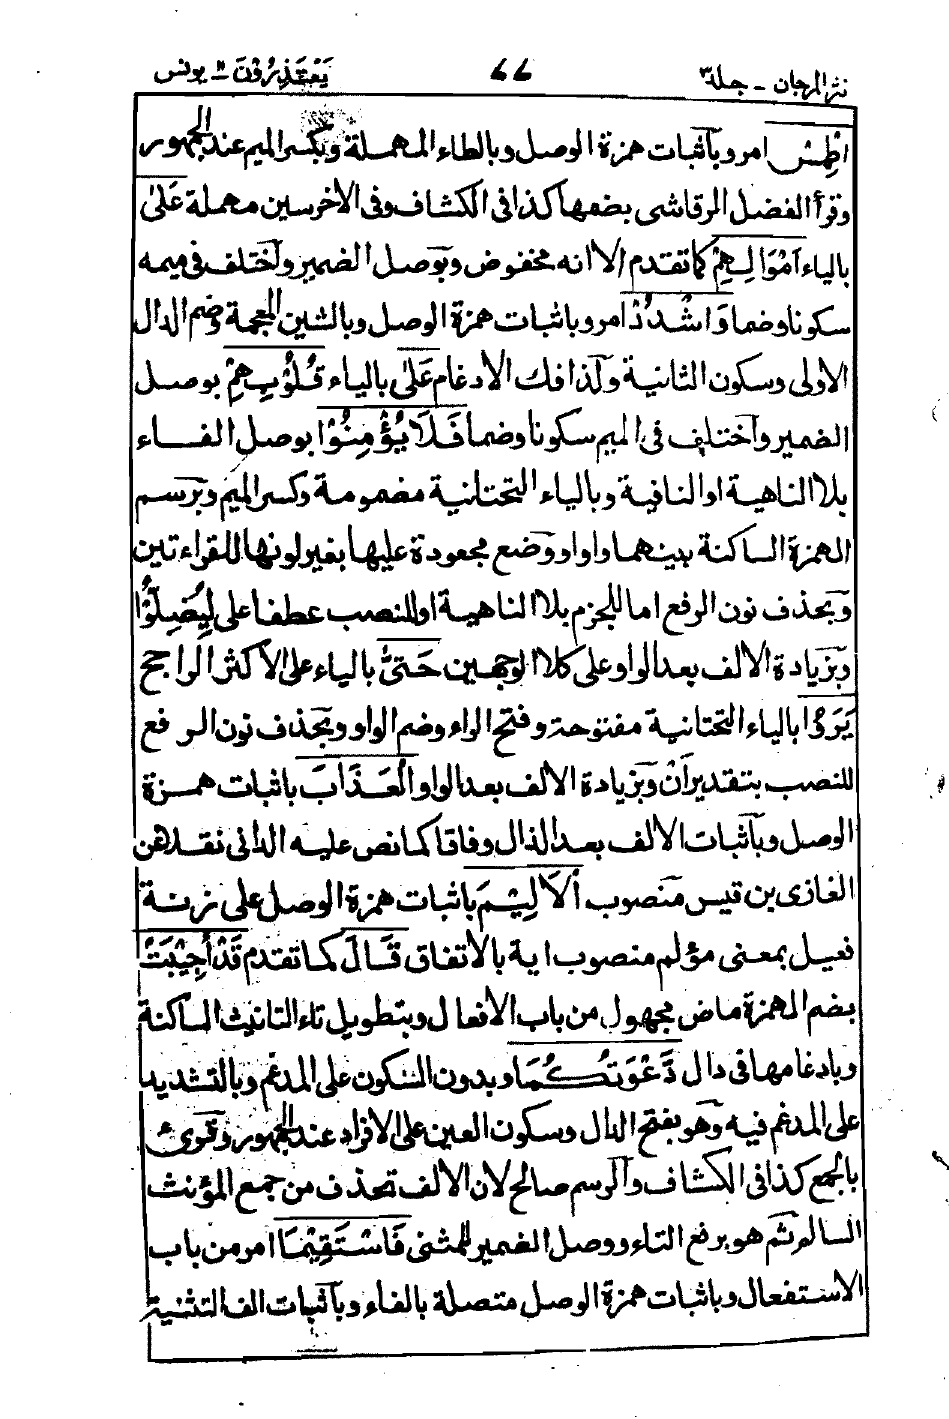 نثر المرجان - جلد ٣ ٧٧ يَعْتَذِرُوْنَ ١١ - يونس
اطْمِسْ امر وبآثبات همزة الوصل وبالطاء المهملة وبكسر الميم عند الجمهور
وقرأ الفضل الرقاشى بضمها كذا فى الكشاف وفى الآخر سين مهملة عَلٰى
بالياء اَمْوَالِهِمْ كما تقدم الا انه مخفوض وبوصل الضمير وآختلف فى ميمه
سكونا وضما وَاشْدُدْ امر وباثبات همزة الوصل وبالشين المعجمة وضم الدال
الاولى وسكون الثانية ولذا فك الادغام عَلٰى بالياء قُلُوْبِهِمْ بوصل
الضمير وآختلف فى الميم سكونا وضما فَلَا يُؤْمِنُوْا بوصل الفاء
بلا الناهية او النافية وبالياء التحتانية مضمومة وكسر الميم وبرسم
الهمزة الساكنة بينهما واوا ووضع مجعودة عليها بغير لونها للقراءتين
وبحذف نون الرفع اما للجزم بلا الناهية او للنصب عطفا على لِيُضِلُّوْا
وبزيادة الالف بعد الواو على كلا الوجهين حَتّٰى بالياء على الاكثر الراجح
يَرَوُا بالياء التحتانية مفتوحة وفتح الراء وضم الواو وبحذف نون الرفع
للنصب بتقدير اَنْ وبزيادة الالف بعد الواو الْعَذَابَ باثبات همزة
الوصل وبآثبات الالف بعد الذال وفاقا كما نص عليه الدانى نقلا عن
الغازى بن قيس منصوب الْاَلِيْمَ باثبات همزة الوصل على زنة
فعيل بمعنى مؤلم منصوب اية بالاتفاق قَالَ كما تقدم قَدْ اُجِيْبَتْ
بضم الهمزة ماض مجهول من باب الافعال وبتطويل تاء التانيث الساكنة
وبادغامها فى دال دَّعْوَتُكُمَا وبدون السكون على المدغم وبالتشديد
على المدغم فيه وهو بفتح الدال وسكون العين على الافراد عند الجمهور وقرئ
بالجمع كذا فى الكشاف وآلرسم صالح لان الالف تحذف من جمع المؤنث
السالم ثم هو برفع التاء ووصل الضمير للمثنى فَاسْتَقِيْمَا امر من باب
الاستفعال وباثبات همزة الوصل متصلة بالفاء وبآثبات الف التثنية